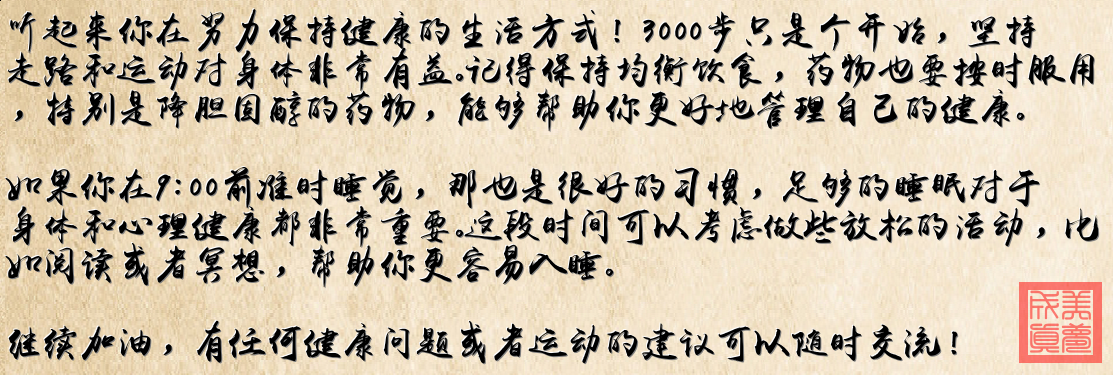 听起来你在努力保持健康的生活方式！3000步只是个开始，坚持
走路和运动对身体非常有益。记得保持均衡饮食，药物也要按时服用
，特别是降胆固醇的药物，能够帮助你更好地管理自己的健康。
如果你在9:00前准时睡觉，那也是很好的习惯，足够的睡眠对于
身体和心理健康都非常重要。这段时间可以考虑做些放松的活动，比
如阅读或者冥想，帮助你更容易入睡。
继续加油，有任何健康问题或者运动的建议可以随时交流！
美梦成真